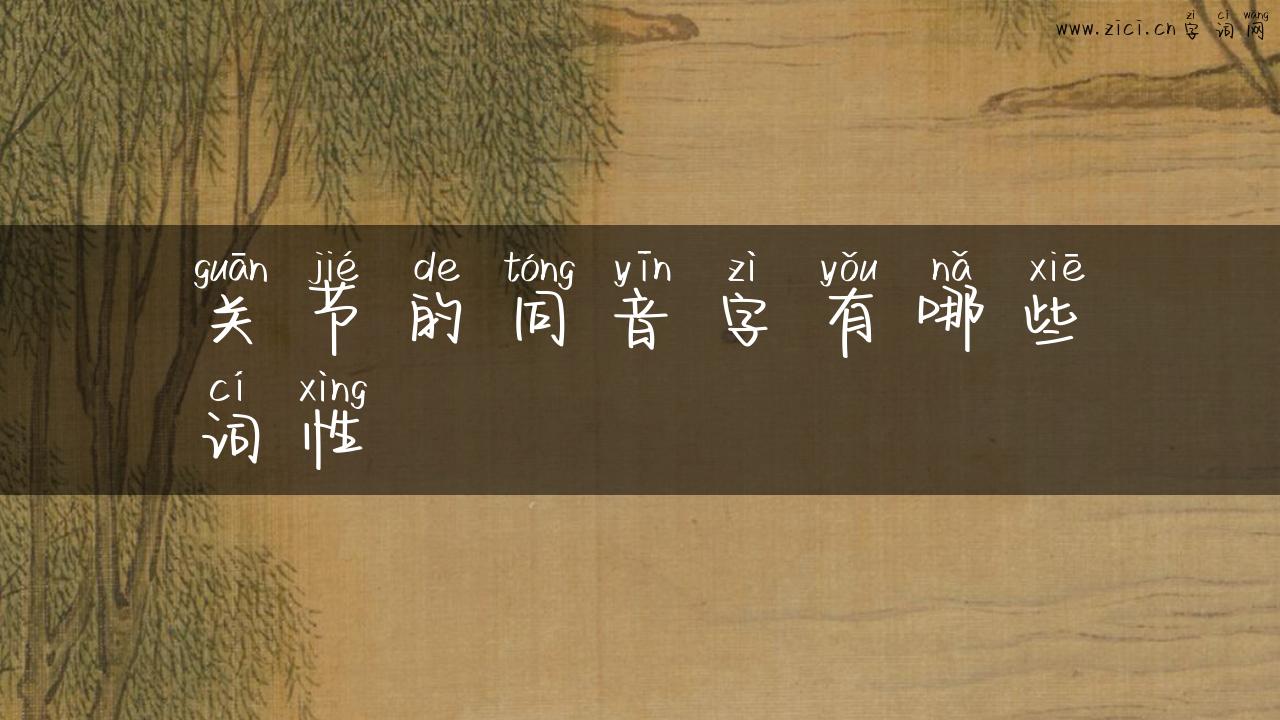 zì cí wǎng
www.zici.cn 字 词 网
guān jié de tóng yīn zì yǒu nǎ xiē
关 节 的 同 音 字 有 哪 些
cí xìng
词 性